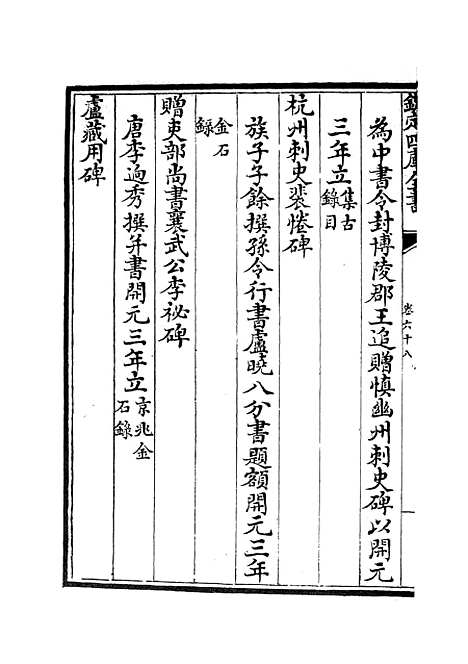 欽定四庫全書
卷六十八
為中書令封博陵郡王追贈慎幽州刺史碑以開元
三年立集古錄目
杭州刺史裴惓碑
族子子餘撰孫令行書盧曉八分書題額開元三年
金石錄
贈吏部尚書襄武公李祕碑
唐李逈秀撰并書開元三年立京兆金石錄
盧藏用碑